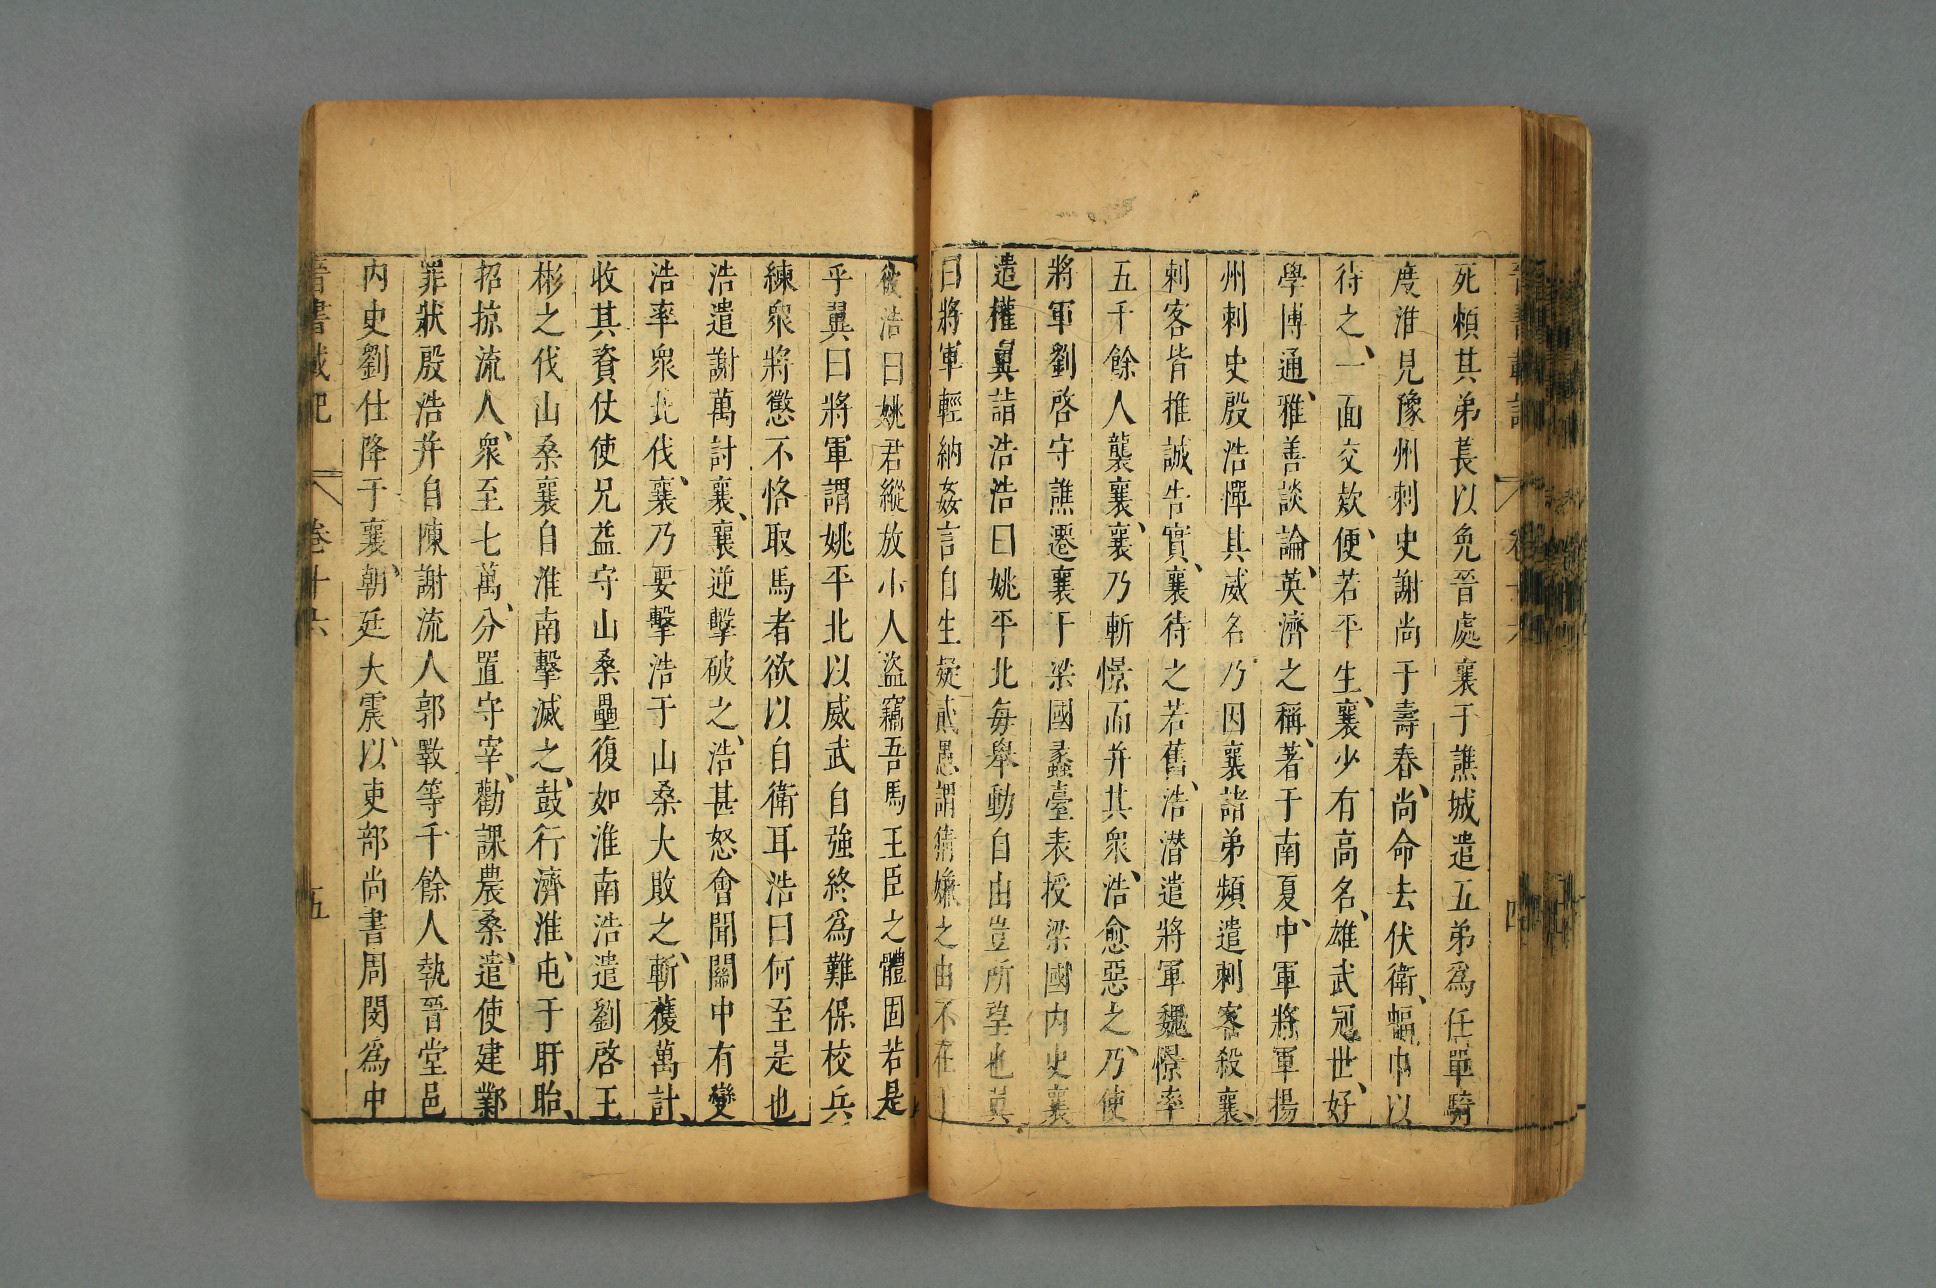 晉書載記 卷十六 四
死賴其弟萇以免晉處襄于譙城遣五弟爲任單騎
度淮見豫州刺史謝尚于壽春、尚命去伏衛、幅巾以
待之、一面交欵、便若平生、襄少有高名、雄武冠世、好
學博通、雅善談論、英濟之稱、著于南夏、中軍將軍揚
州刺史殷浩憚其威名乃因襄諸弟頻遣刺客殺襄、
刺客皆推誠告實、襄待之若舊、浩潛遣將軍魏憬率
五千餘人襲襄、襄乃斬憬而并其衆、浩愈惡之、乃使
將軍劉啓守譙遷襄于梁國蠡臺表授梁國内史襄
遣權翼詣浩浩曰姚平北每舉動自由豈所望也翼
曰將軍輕納姦言自生疑貳愚謂猜嫌之由不在
彼浩曰姚君縱放小人盜竊吾馬王臣之體固若是
乎翼曰將軍謂姚平北以威武自強終爲難保校兵
練衆將懲不恪取馬者欲以自衛耳浩曰何至是也
浩遣謝萬討襄、襄逆擊破之、浩甚怒會聞關中有變
浩率衆北伐、襄乃要擊浩于山桑大敗之、斬獲萬計、
收其資仗使兄益守山桑壘復如淮南浩遣劉啓王
彬之伐山桑襄自淮南擊滅之、鼓行濟淮、屯于盱眙、
招掠流人、衆至七萬、分置守宰、勸課農桑、遣使建鄴
罪狀殷浩并自陳謝流人郭斁等千餘人執晉堂邑
内史劉仕降于襄、朝廷大震、以吏部尚書周閔爲中
晉書載記 卷十六 五